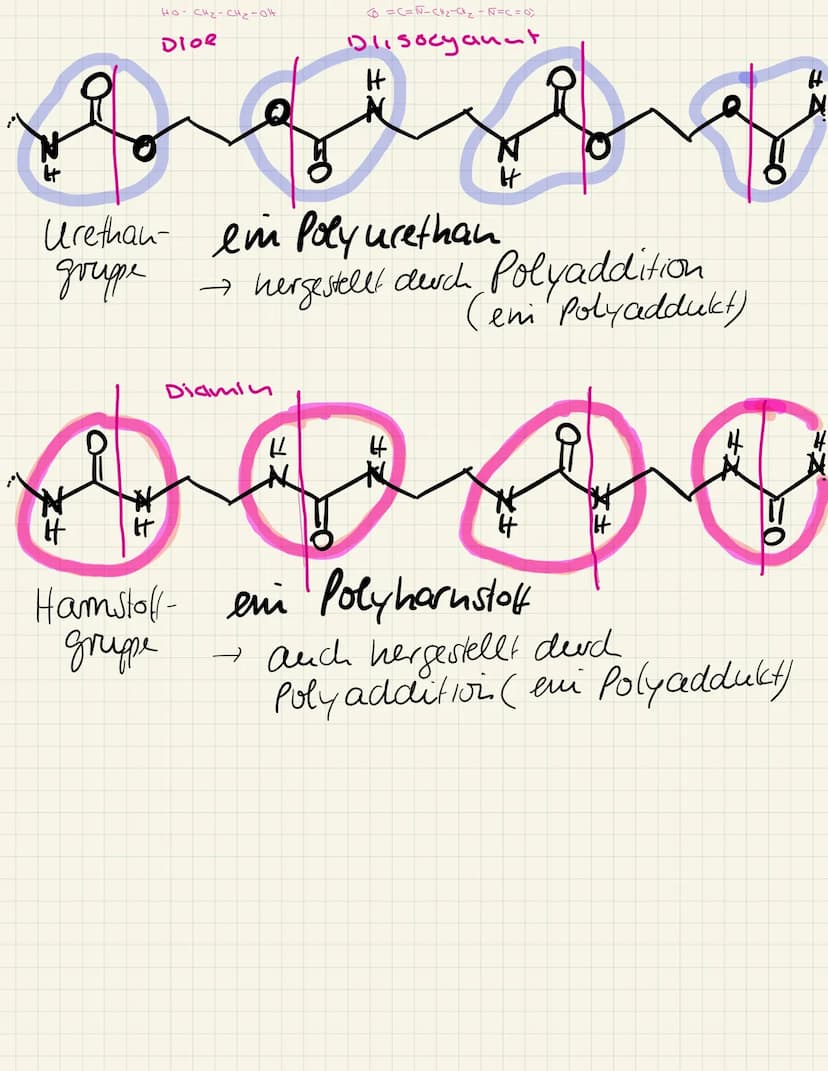 HO-CH₂-CH₂-OH ⟨O=C=N-CH₂-CH₂-N=C=O⟩
Diol Diisocyanat
O H O H
N O O N N O O N
H O H O
Urethan- ein Polyurethan
gruppe → hergestellt durch Polyaddition
(ein Polyaddukt)
Diamin
O H H O H H
N N N N N N N N
H H O H H O
Harnstoff- ein Polyharnstoff
gruppe → auch hergestellt durch
Polyaddition (ein Polyaddukt)